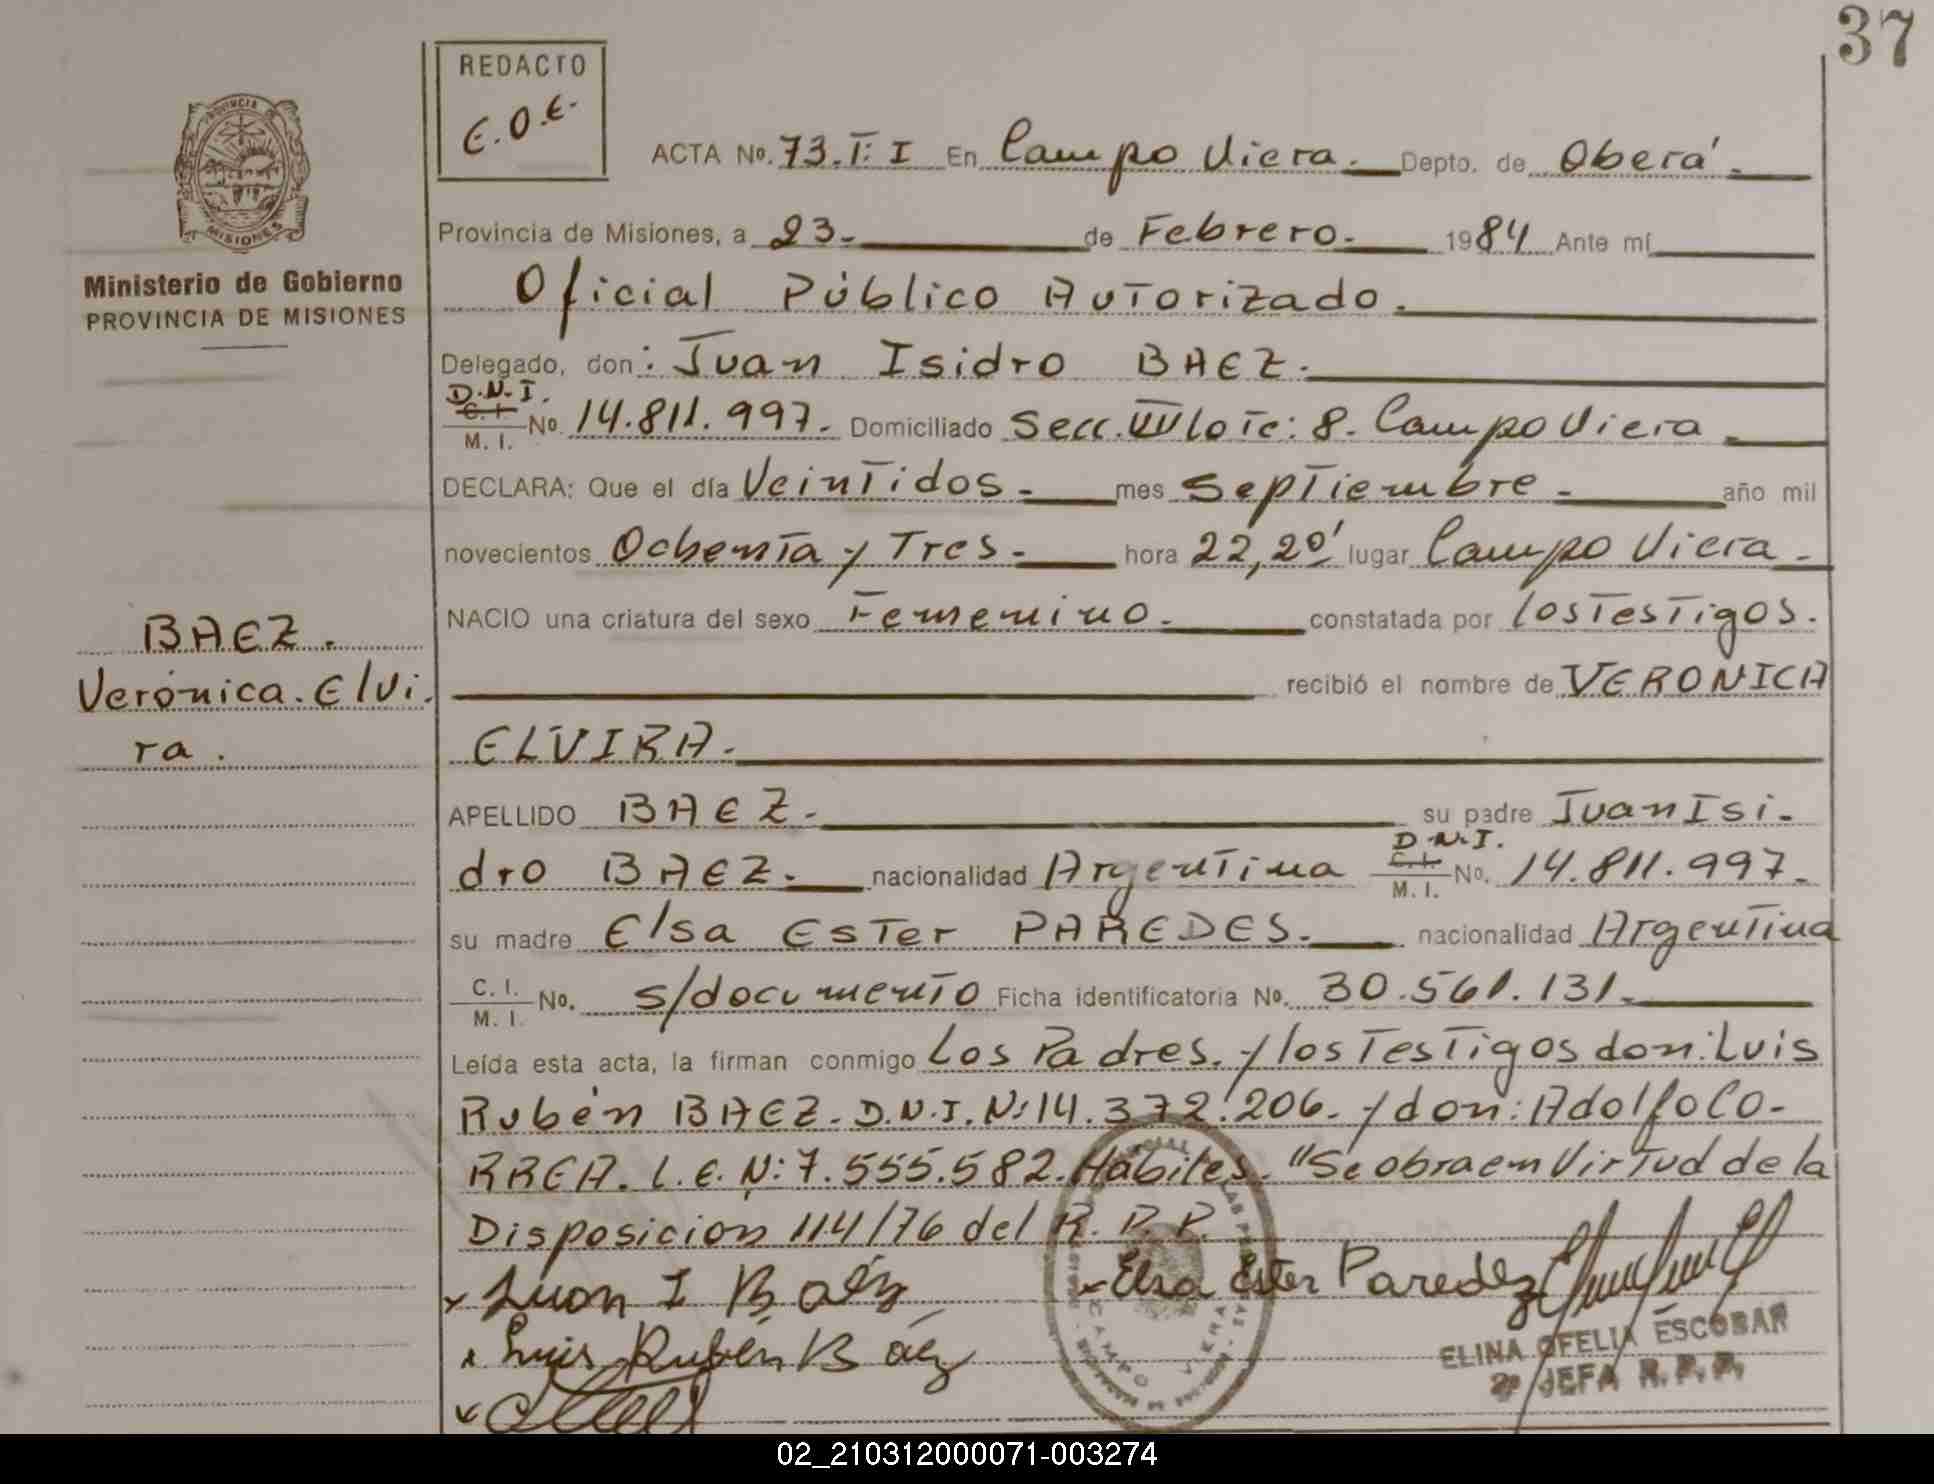 37
REDACTO
E.O.E.
PROVINCIA DE
MISIONES
Ministerio de Gobierno
PROVINCIA DE MISIONES
ACTA No. 73.T: I En Campo Viera. Depto. de Oberá.
Provincia de Misiones, a 23. de Febrero. 1984 Ante mí
Oficial Público Autorizado.
Delegado, don: Juan Isidro BAEZ.
D.N.I.
C. I.
M. I. No. 14.811.997. Domiciliado Secc. VII lote: 8. Campo Viera
DECLARA: Que el día Veintidos. mes Septiembre. año mil
novecientos Ochenta y Tres. hora 22,20' lugar Campo Viera.
NACIO una criatura del sexo Femenino. constatada por los Testigos.
recibió el nombre de VERONICA
ELVIRA.
BAEZ.
Verónica. Elvi.
ra.
APELLIDO BAEZ. su padre Juan Isi-
dro BAEZ. nacionalidad Argentina D.N.I. C. I. M. I. No. 14.811.997.
su madre Elsa Ester PAREDES. nacionalidad Argentina
C. I. M. I. No. s/documento Ficha identificatoria No. 30.561.131.
Leída esta acta, la firman conmigo Los Padres. y los Testigos don: Luis
Rubén BAEZ. D.N.I. N: 14.372.206. y don: Adolfo CO-
RREA. L.E. N: 7.555.582. Hábiles. "Se obra en Virtud de la
Disposicion 114/76 del R.P.P.
Juan I Baéz Elsa Ester Paredez
Luis Rubén Báez
CAMPO VIERA
ELINA OFELIA ESCOBAR
2ª JEFA R.P.P.
02_210312000071-003274